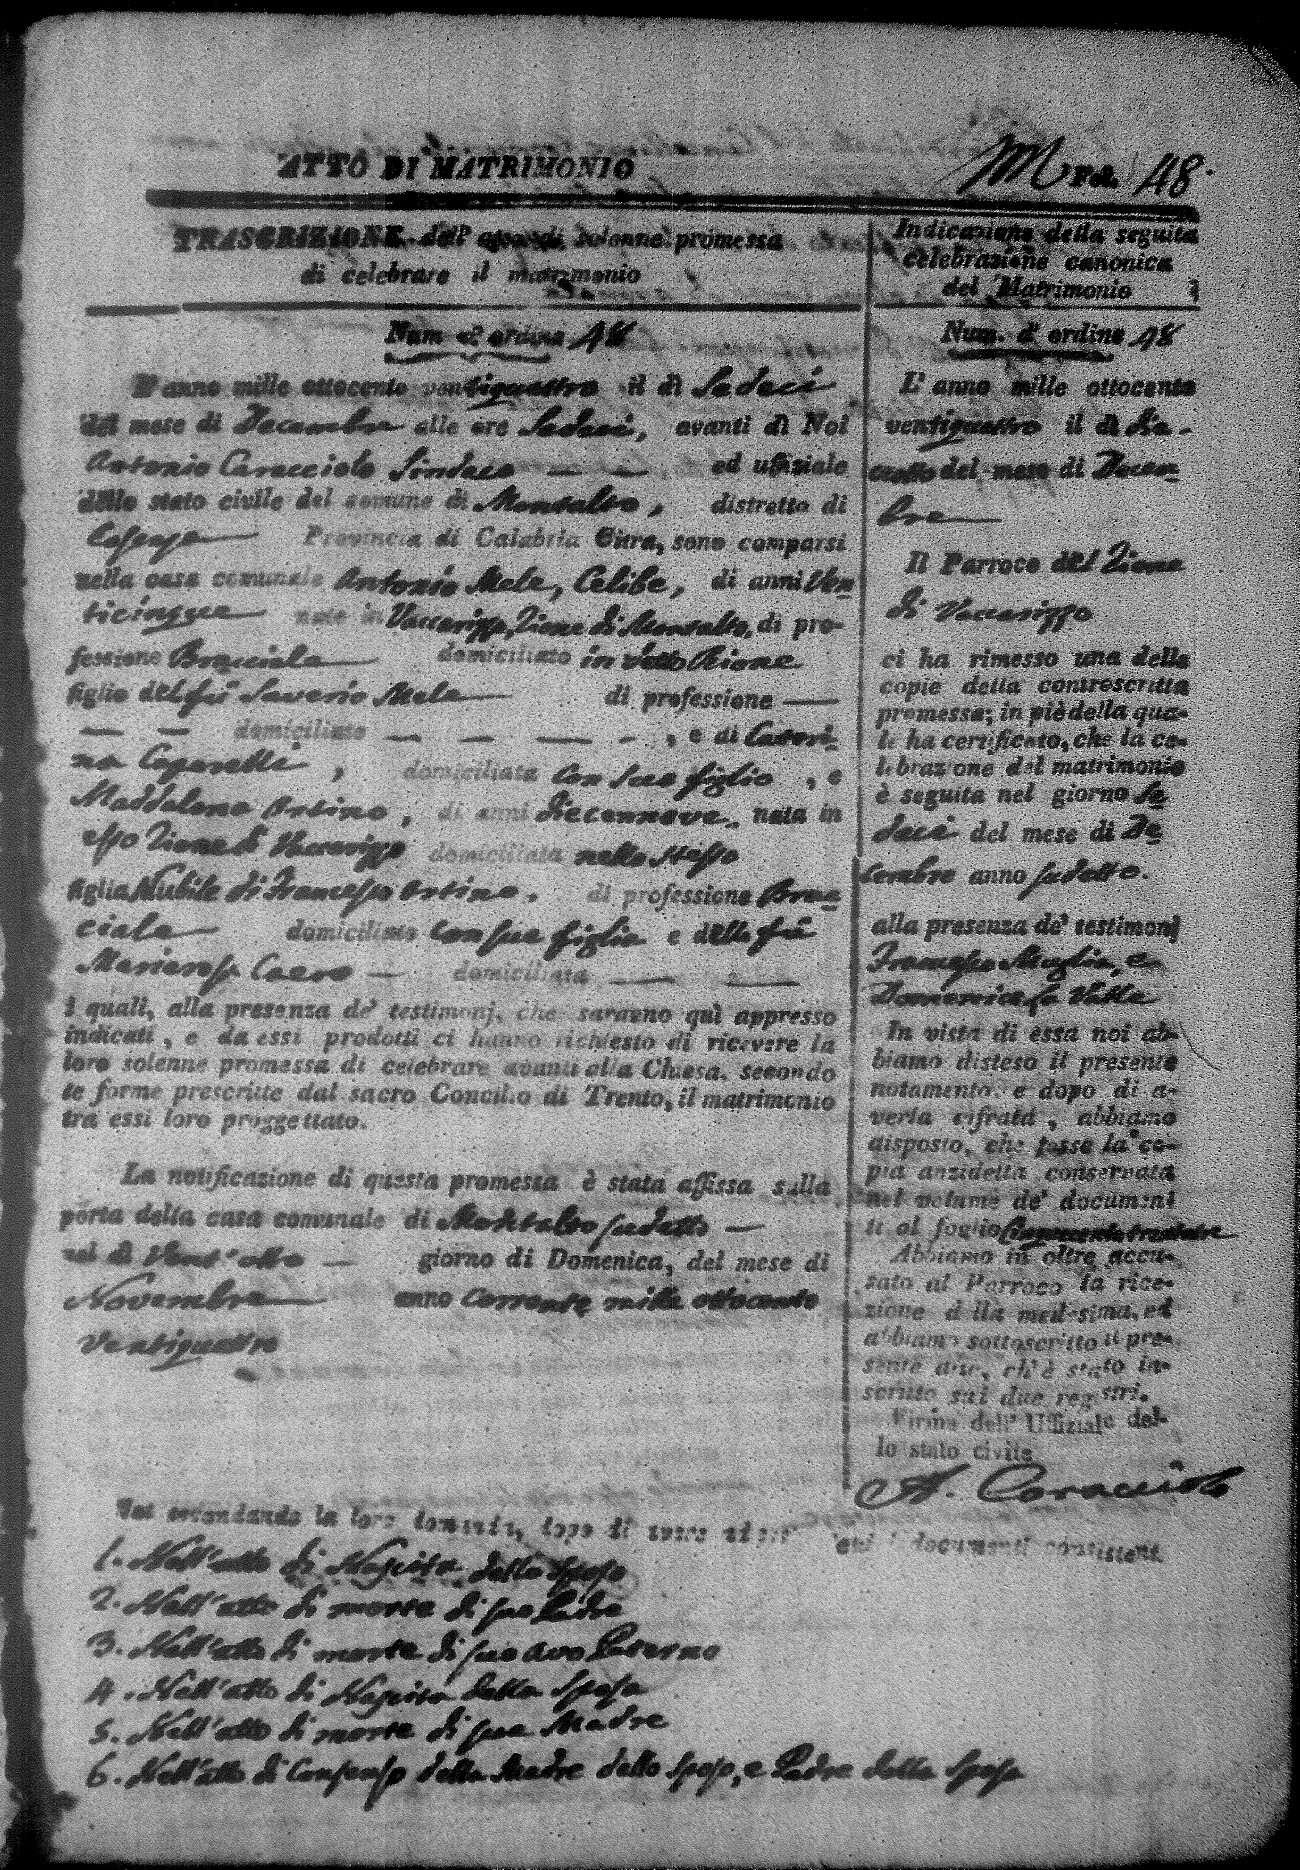 ATTO DI MATRIMONIO
Fol. 48.
TRASCRIZIONE dell' atto di solenne promessa
di celebrare il matrimonio
Num d' ordine 48
L' anno mille ottocento ventiquattro il dì Sedeci
del mese di Decembre alle ore Sedeci, avanti di Noi
Antonio Caracciolo Sindaco — — ed uffiziale
dello stato civile del comune di Montalto, distretto di
Cosenza Provincia di Calabria Citra, sono comparsi
nella casa comunale Antonio Mele, Celibe, di anni Ven
ticinque nato in Vaccarizzo, Rione di Montalto, di pro-
fessione Bracciale domiciliato in detto Rione
figlio del fù Saverio Mele di professione —
— — domiciliato — — — - , e di Cateri-
na , domiciliata con suo figlio , e
Maddalena Orsino, di anni diecennove, nata in
esso Rione di Vaccarizzo domiciliata nello stesso
figlia Nubile di Francesco Orsino. di professione Brac-
ciale domiciliato con sua figlia e della fù
Mariarosa — domiciliata — —
i quali, alla presenza de' testimonj, che saranno quì appresso
indicati, e da essi prodotti ci hanno richiesto di ricevere la
loro solenne promessa di celebrare avanti alla Chiesa, secondo
le forme prescritte dal sacro Concilio di Trento, il matrimonio
tra essi loro proggettato.
La notificazione di questa promessa è stata affissa sulla
porta della casa comunale di Montalto sudetto —
nel dì Vent'otto — giorno di Domenica, del mese di
Novembre anno corrente mille ottocento
ventiquattro
Indicazione della seguita
celebrazione canonica
del Matrimonio
Num. d' ordine 48
L' anno mille ottocento
ventiquattro il dì die-
ciotto del mese di Decem-
bre
Il Parroco del Rione
di Vaccarizzo
ci ha rimesso una delle
copie della controscritta
promessa; in piè della qua-
le ha certificato, che la ce-
lebrazione del matrimonio
è seguita nel giorno Se-
deci del mese di De-
cembre anno sudetto.
alla presenza de' testimonj
Francesco Muglia, e
Domenico la Valle
In vista di essa noi ab-
biamo disteso il presente
notamento, e dopo di a-
verla cifrata, abbiamo
disposto, che fosse la co-
pia anzidetta conservata
nel volume de' documen-
ti al foglio
Abbiamo in oltre accu-
sato al Parroco la rice-
zione della medesima, ed
abbiamo sottoscritto il pre-
sente atto, ch' è stato in-
scritto sui due registri.
Firma dell' Uffiziale del-
lo stato civile
A. Caracciolo
Noi secondando la loro domanda, dopo di avere i documenti consistenti
1. Nell'atto di Nascita dello Sposo
2. Nell'atto di morte di suo Padre
3. Nell'atto di morte di suo avo Paterno
4. Nell'atto di Nascita della Sposa
5. Nell'atto di morte di sua Madre
6. Nell'atto di Consenso della Madre dello Sposo, e Padre della Sposa